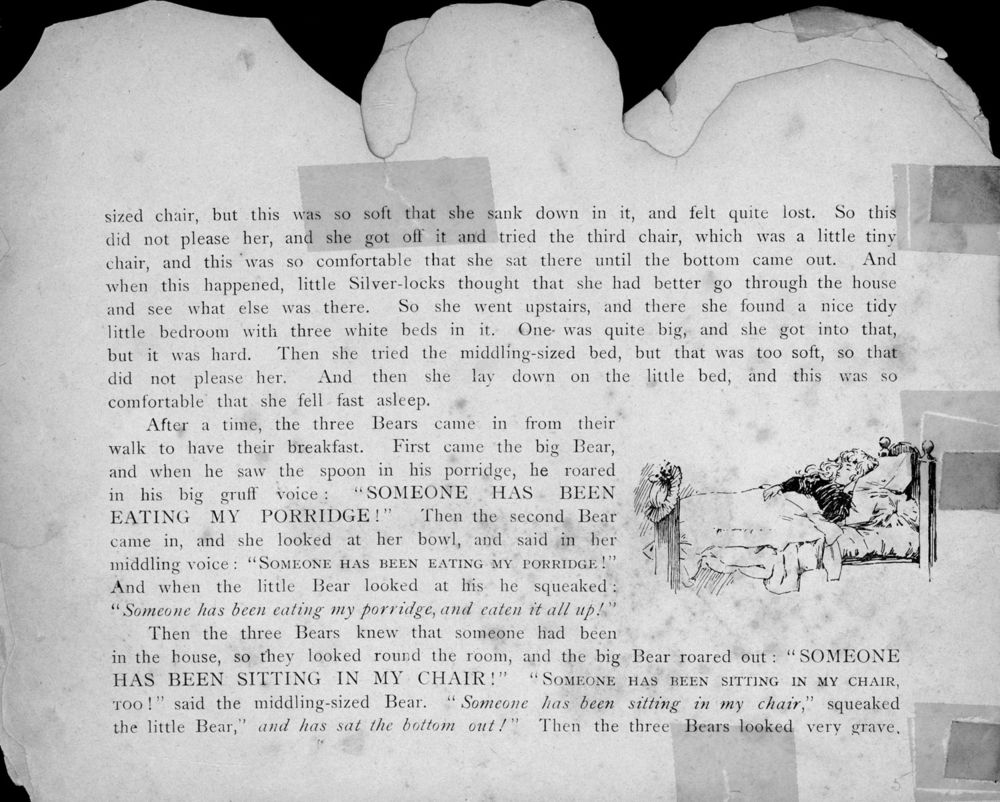 sized chair, but this was so soft that she sank down in it, and felt quite lost. So this
did not please her, and she got off it and tried the third chair, which was a little tiny
chair, and this was so comfortable that she sat there until the bottom came out. And
when this happened, little Silver-locks thought that she had better go through the house
and see what else was there. So she went upstairs, and there she found a nice tidy
little bedroom with three white beds in it. One was quite big, and she got into that,
but it was hard. Then she tried the middling-sized bed, but that was too soft, so that
did not please her. And then she lay down on the little bed, and this was so
comfortable that she fell fast asleep.
After a time, the three Bears came in from their
walk to have their breakfast. First came the big Bear,
and when he saw the spoon in his porridge, he roared
in his big gruff voice: "SOMEONE HAS BEEN
EATING MY PORRIDGE!" Then the second Bear
came in, and she looked at her bowl, and said in her
middling voice: "SOMEONE HAS BEEN EATING MY PORRIDGE!"
And when the little Bear looked at his he squeaked:
"Someone has been eating my porridge, and eaten it all up!"
Then the three Bears knew that someone had been
in the house, so they looked round the room, and the big Bear roared out: "SOMEONE
HAS BEEN SITTING IN MY CHAIR!" "SOMEONE HAS BEEN SITTING IN MY CHAIR,
TOO!" said the middling-sized Bear. "Someone has been sitting in my chair," squeaked
the little Bear," and has sat the bottom out!" Then the three Bears looked very grave.
5